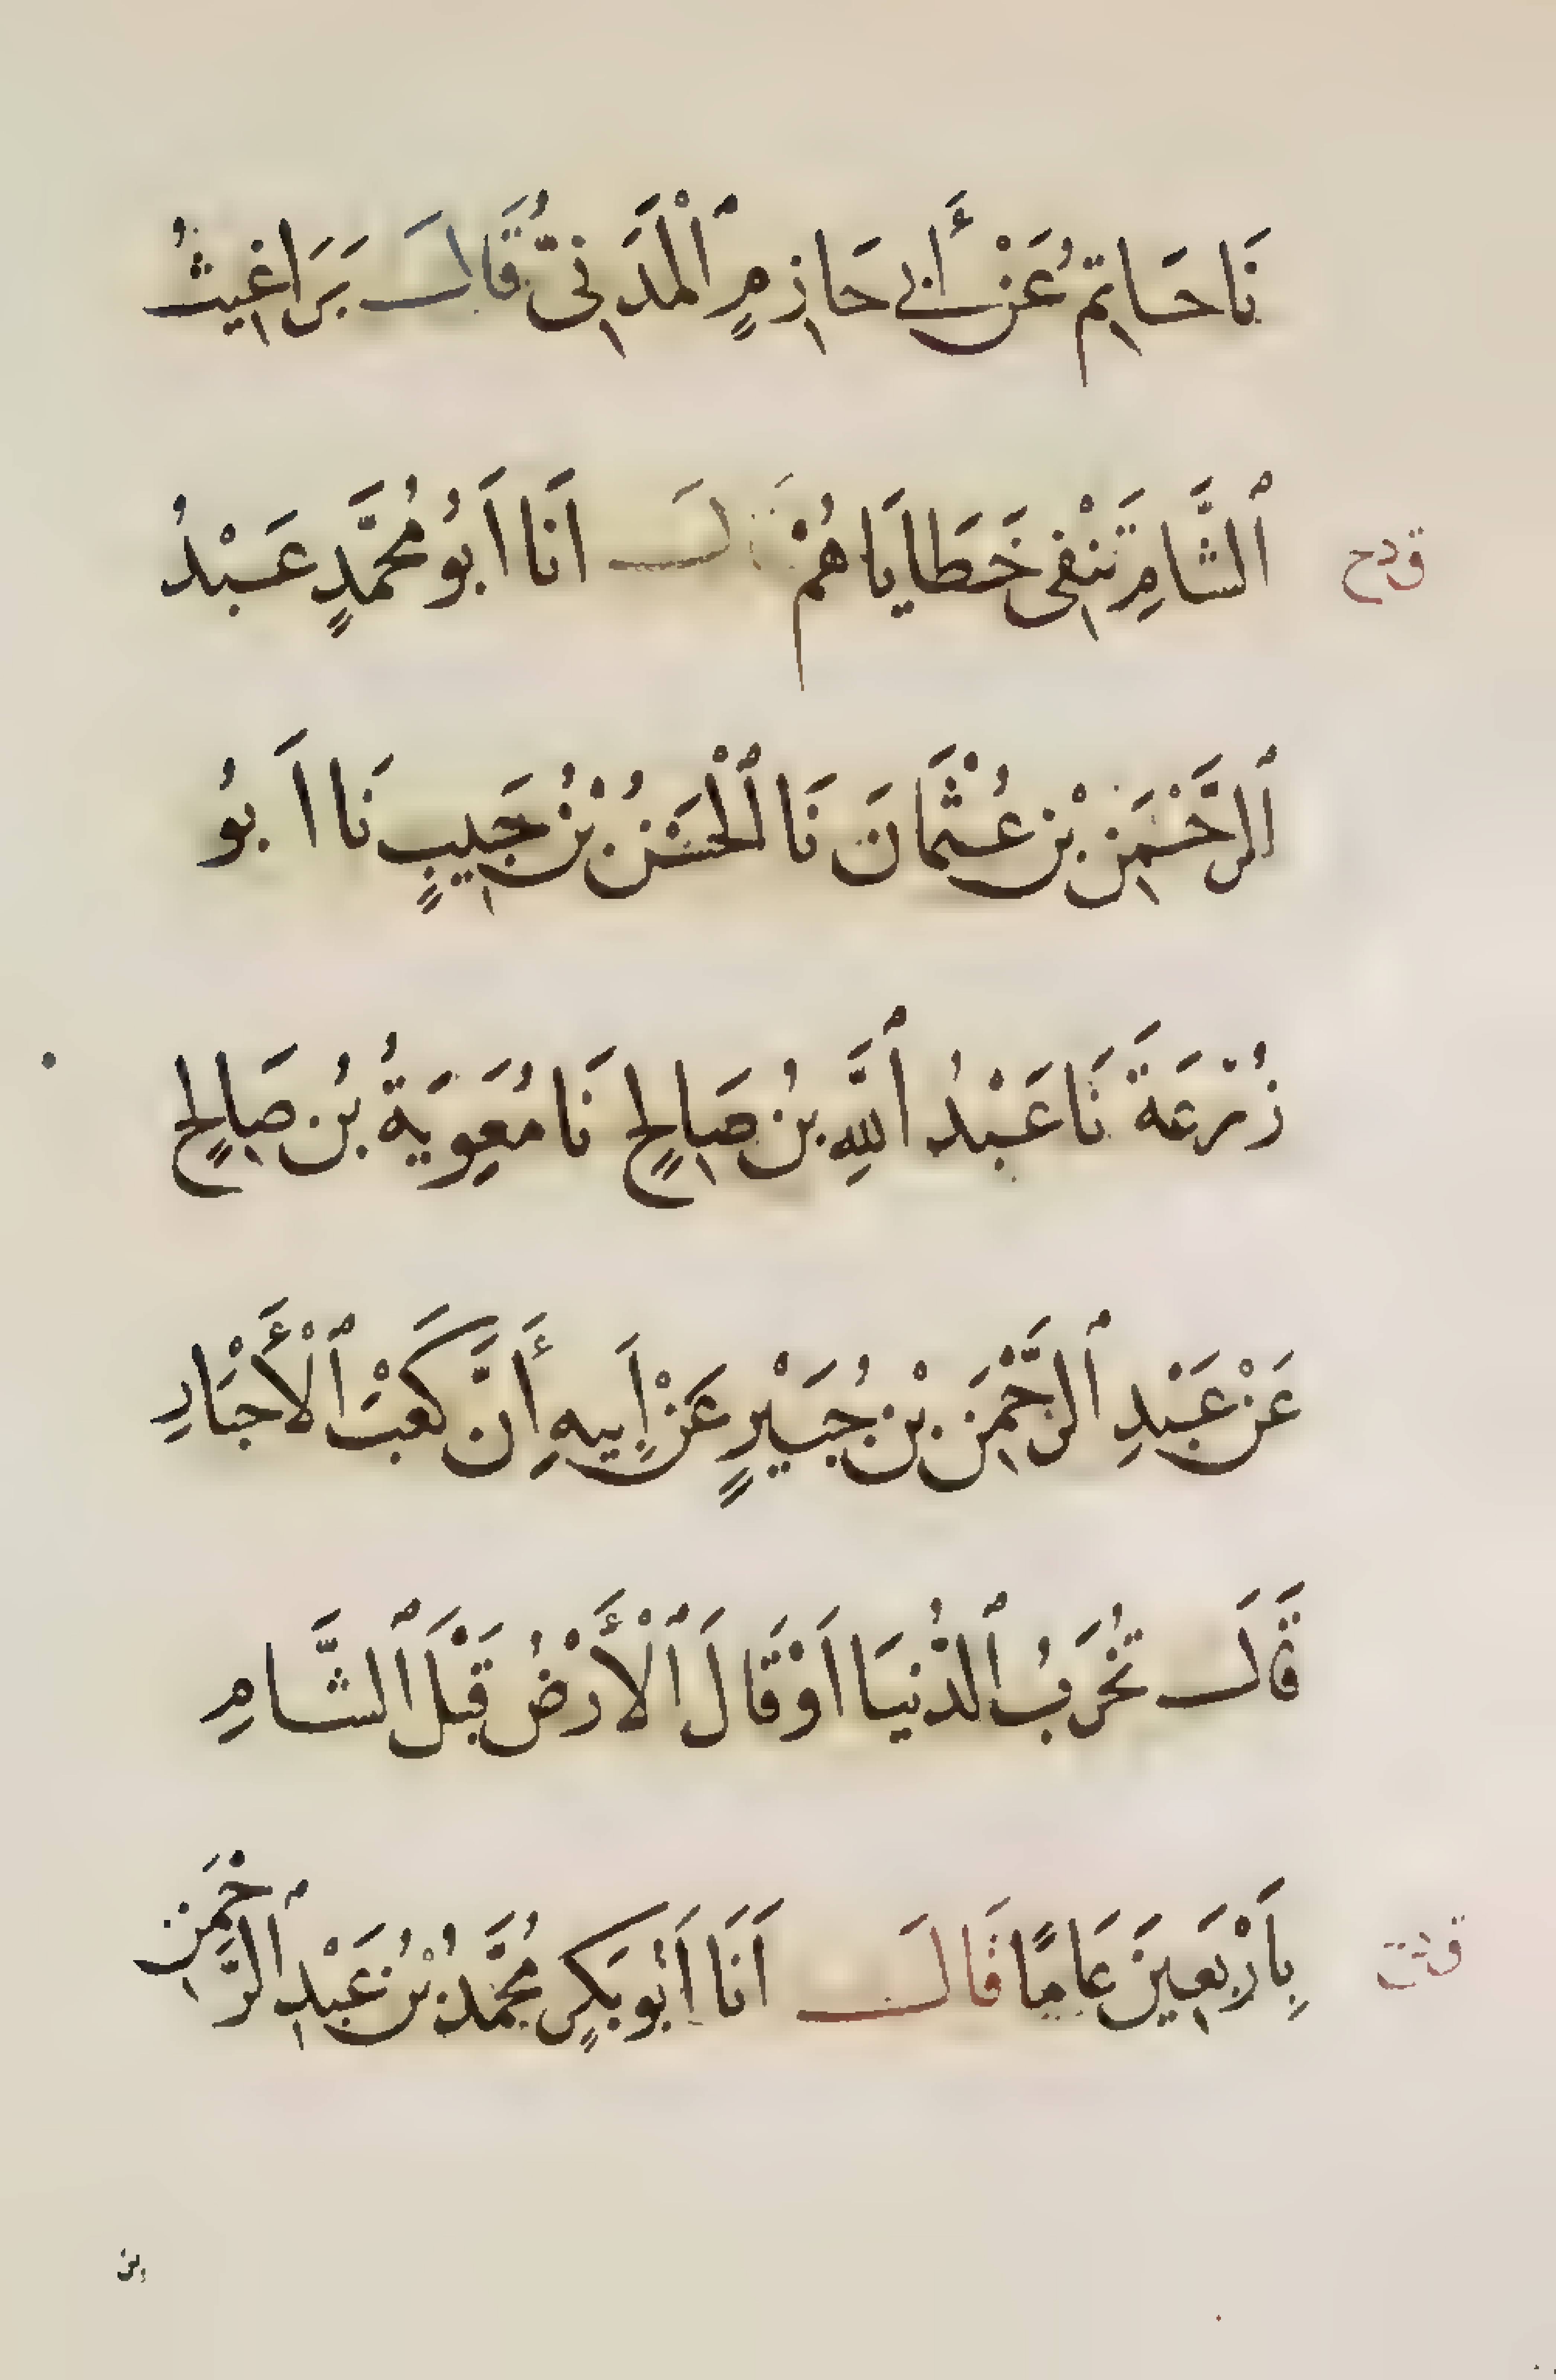 نَا حَاتِمُ عَنْ أَبِي حَازِمٍ ٱلْمَدَنِيُّ قَالَ بَرَاغِيثُ
ٱلشَّامِ تَنْفِي خَطَايَاهُمْ قَالَ اَنَا اَبُو مُحَمَّدٍ عَبْدُ
قدح
ٱلرَّحْمَنِ بْنِ عُثْمَانَ نَا ٱلْحَسَنُ بْنُ حَبِيبٍ نَا اَبُو
زُرْعَةَ نَا عَبْدُ ٱللَّهِ بْنُ صَالِحٍ نَا مُعَوِيَةُ بْنُ صَالِحٍ
عَنْ عَبْدِ ٱلرَّحْمَنِ بْنِ جُبَيْرٍ عَنْ اَبِيهِ أَنَّ كَعْبَ ٱلْأَحْبَارِ
قَالَ تُخْرَبُ ٱلدُّنْيَا اَوْ قَالَ ٱلْأَرْضُ قَبْلَ ٱلشَّامِ
بِاَرْبَعِينَ عَامًا قَالَ اَنَا اَبُو بَكْرٍ مُحَمَّدُ بْنُ عَبْدِ ٱلرَّحْمَنِ
بن